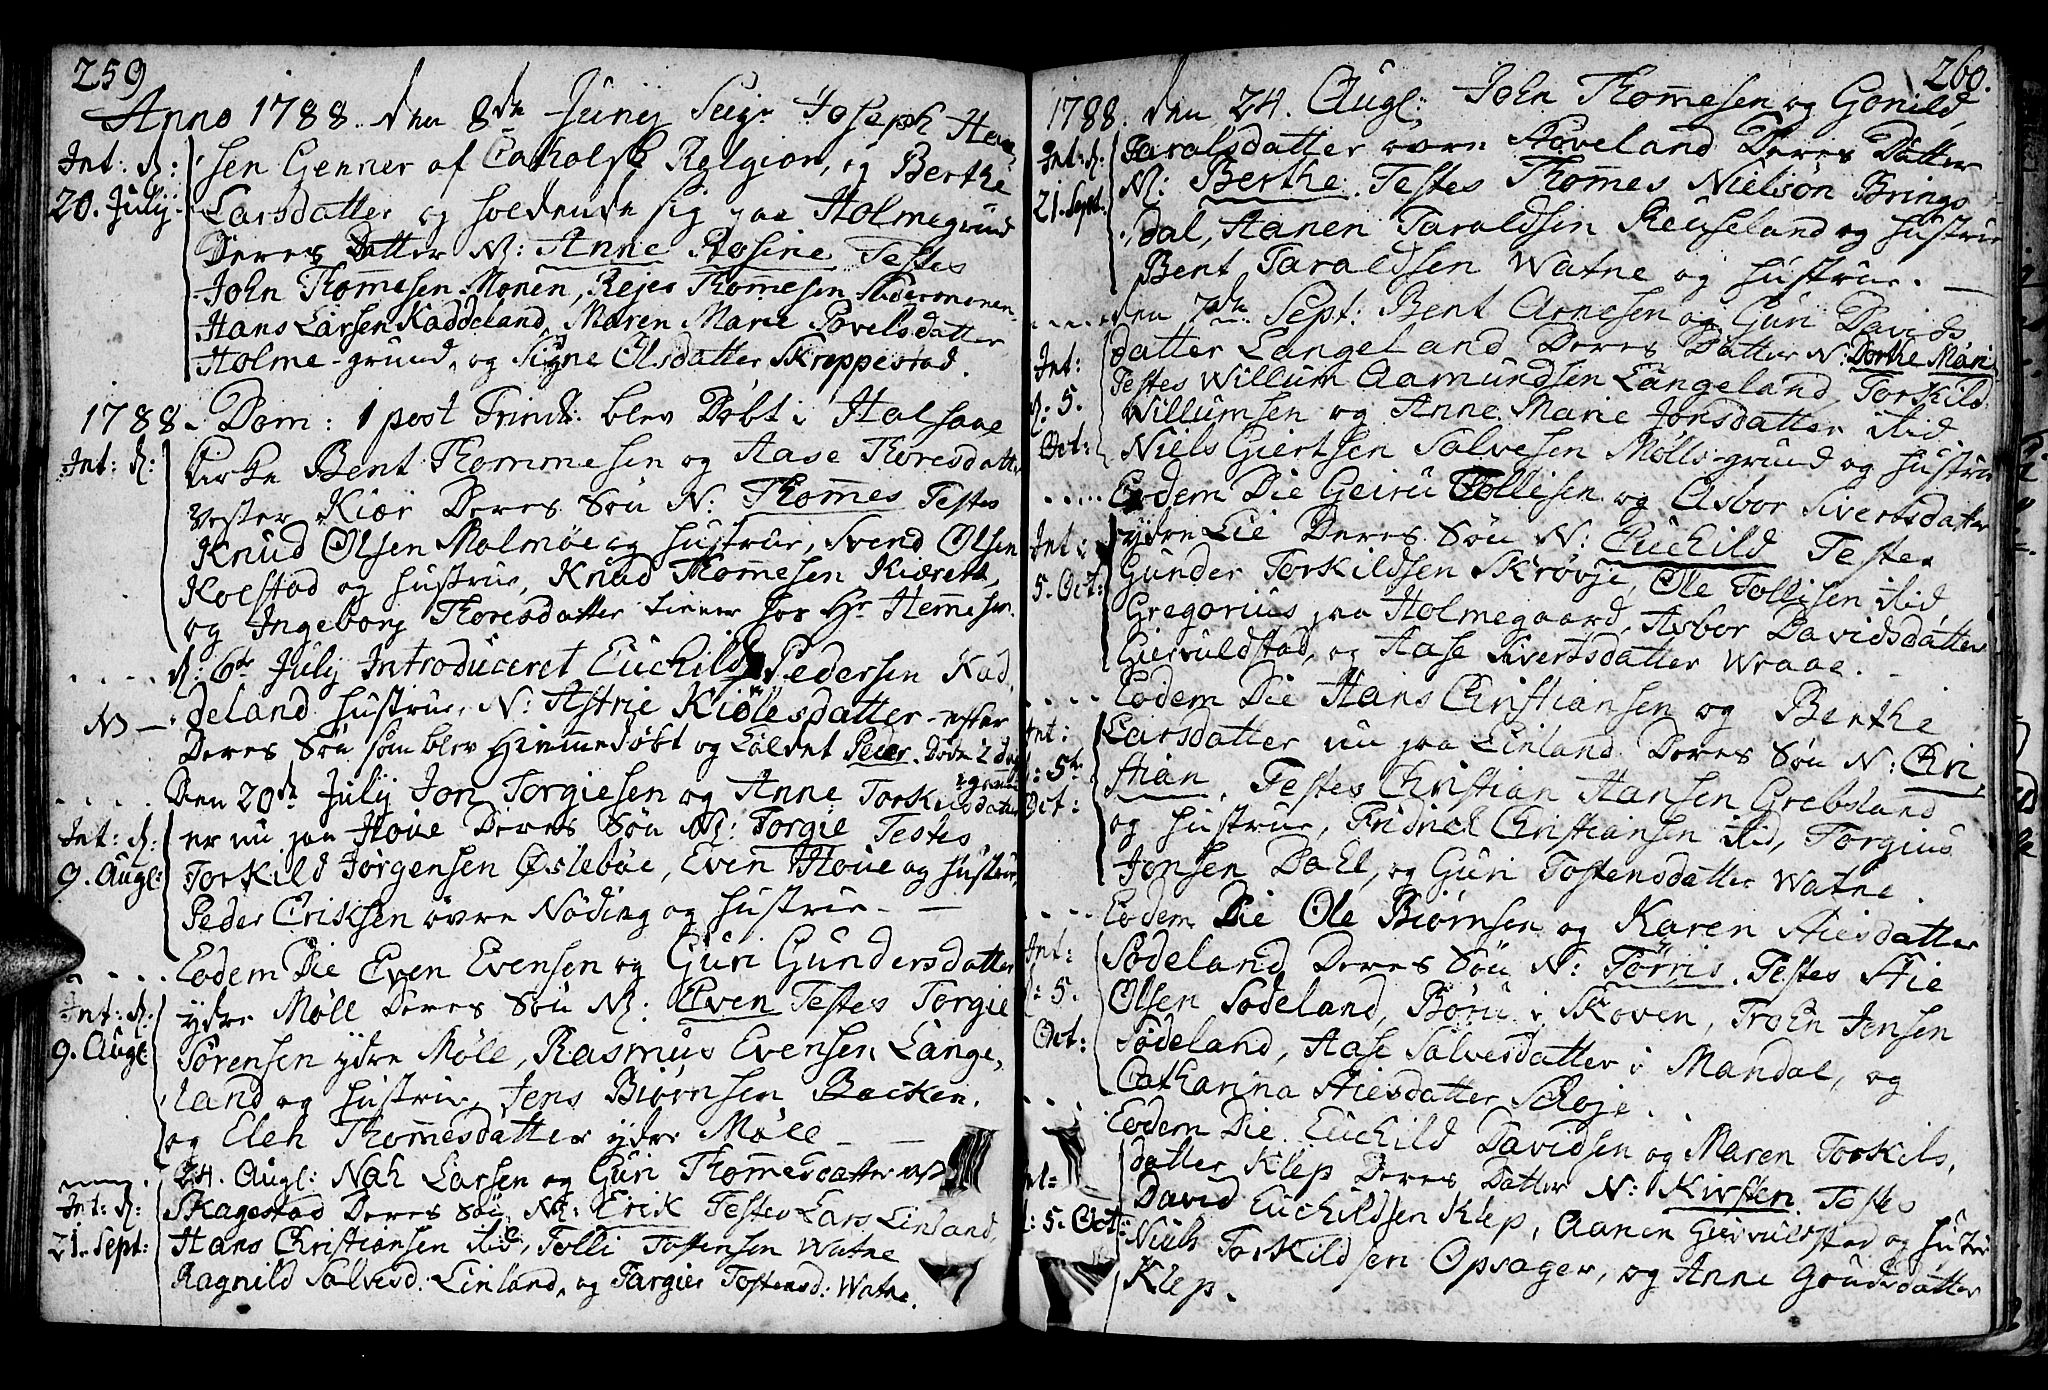 259
Anno 1788. den 8de Junij Seigr Joseph Hen=
Int: d: sen Genner af Catholsk Religion, og Berthe
20. July. Larsdatter og holdende sig paa Holmegrund
Deres Datter N: Anne Rosine Testes
John Thom̄esen Monen, Rejer Thom̄esen
Hans Larsen Kaddeland, Maren Marie Povelsdatter
Holme-grund, og Signe Olsdatter Skreppestad.
1788. Dom: 1 post Trinit: blev Døbt i Halsaae
Int: d: Kirke Bent Thommesen og Aase Thoresdatter
Vester Kiær Deres Søn N: Thom̄es Testes
Knud Olsen Malmøe og hustrue, Svend Olsen
Koestad og hustrue, Knud Thom̄esen
og Ingeborg Thoresdatter tiener hos Hr Hem̄esen
d: 6te July Introduceret Euchild Pedersen Kad,
N3 – deland hustrue, N: Astrie Kiølesdatter - efter
Deres Søn som blev Hiemmedøbt og Kaldet Peder. døde 2 dage
gam̄el
Den 20de July Jon Torgiesen og Anne Torkilsdatter
Int: d: er nu paa Houe Deres Søn N: Torgie Testes
9. Augl: Torkild Jørgensen Øslebøe, Even Houe og hustrue,
Peder Eriksen øvre Nøding og hustrue. —
Eodem Die Even Evensen og Guri Gundersdatter
Int: d: ydre Møll Deres Søn N: Even Testes Torgie
9. Augl: Sørensen ydre Mølle, Rasmus Evensen Lange,
land og hustrue, Jens Biørnsen Backen,
og Eleh Thom̄esdatter ydre Møll —
24. Augl: Nah Larsen og Guri Thom̄esdatter
Int: d: Skagestad Deres Søn N: Erik Testes Lars Linland,
21. Sept: Hans Christiansen ibid, Tolli Tostensen Watne
Ragnild Salvesd: Linland, og Targier Tostensd: Watne.
260.
1788. den 24. Augl: John Thom̄esen og Gonild
Int: d: Taralsdatter øvre Høveland Deres Datter
21. Sept: N: Berthe. Testes Thom̄es Nielsøn Brings
dal, Aanen Taraldsen Reuseland og hustrue
Bent Taraldsen Watne og hustrue. —
den 7de Sept: Bent Arnesen og Guri Davids
Int: datter Langeland Deres Datter N: Dorthe Mari
Testes Willum Aamundsen Langeland, Torkild
d: 5. Willumsen og Anne Marie Jonsdatter ibid
Oct: Niels Giertsen Salvesen Mølls-grund og hustrue
Eodem Die Geiru Tollisen og Asbor Sivertsdatter
Int: ydre Lie Deres Søn N: Euchild Testes
5. Oct: Gunder Torkildsen Skrøvje, Ole Tollisen ibid,
Gregorius paa Holmegaard, Asbor Davidsdatter
Giervuldstad, og Aase Sivertsdatter Wraae.
Eodem Die Hans Christiansen og Berthe
Int: Larsdatter nu paa Linland Deres Søn N: Chri
d: 5te stian. Testes Christian Hansen Grebsland
Oct: og hustrue, Fridrich Christiansen ibid, Torgius
Jonsen Dahl, og Guri Tostensdatter Watne.
Eodem Die Ole Biørnsen og Karen Aiesdatter
Int: Sødeland Deres Søn N: Tørris. Testes Aie
d: 5. Olsen Sødeland, Børu i Skoven, Troen Jensen
Oct: Sødeland, Aase Salvesdatter i Mandal, og
Catharina Aiesdatter
Eodem Die Euchild Davidsen og Maren Torkils,
Int: datter Klep Deres Datter N: Kirsten. Testes
d: 5. Oct: David Euchildsen Klep, Aanen Giervulstad og hustrue
Niels Torkildsen Opsager, og Anne Gundsdatter
Klep.